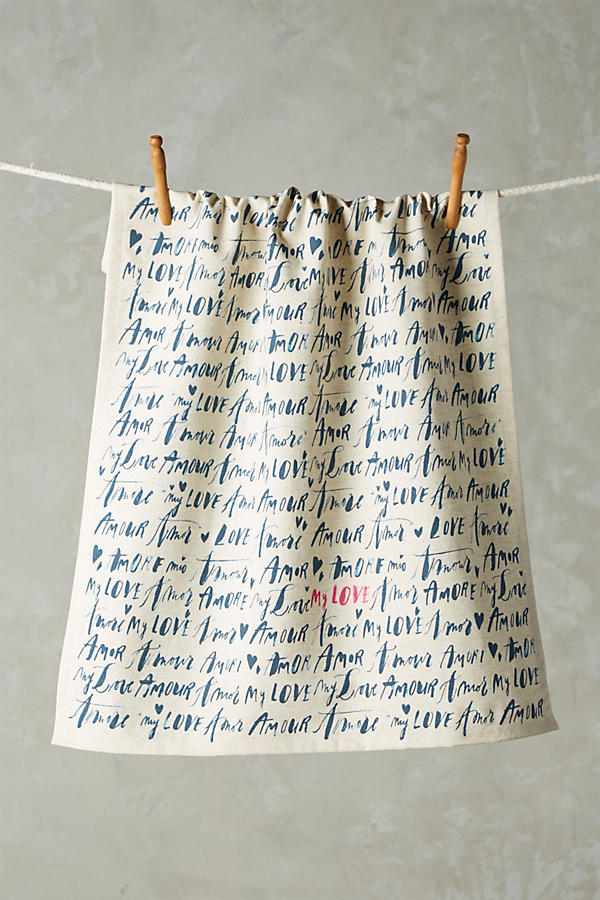 AMOUR Amor ♥ LOVE AMOUR Amor ♥ LOVE
♥, AMORE mio Amour, AMOR ♥, AMORE Amour, AMOR
My LOVE Amor AMORE my Love My LOVE Amor AMORE my Love
Amore My LOVE Amor AMOUR Amore My LOVE Amor AMOUR
AMOR Amour AMORE AMOR AMOR Amour AMORI ♥, AMOR
my Love AMOUR Amor my Love AMOUR Amor My LOVE
Amore my LOVE Amor AMOUR Amore my LOVE Amor AMOUR
AMOR Amour AMOR Amore AMOR Amour AMOR Amore
my Love AMOUR Amor My LOVE my Love AMOUR Amor My LOVE
Amore my LOVE Amor AMOUR Amore my LOVE Amor AMOUR
AMOUR Amor ♥ LOVE Amore AMOUR Amor ♥ LOVE Amore
♥, AMORE mio Amour, AMOR ♥, AMORE mio Amour, AMOR
My LOVE Amor AMORE my Love My LOVE Amor AMORE my Love
Amore My LOVE Amor ♥ AMOUR Amore My LOVE Amor ♥ AMOUR
AMOR Amour AMORI ♥, AMOR AMOR Amour AMORI ♥, AMOR
my Love AMOUR Amor My LOVE my Love AMOUR Amor My LOVE
Amore my LOVE Amor AMOUR Amore my LOVE Amor AMOUR